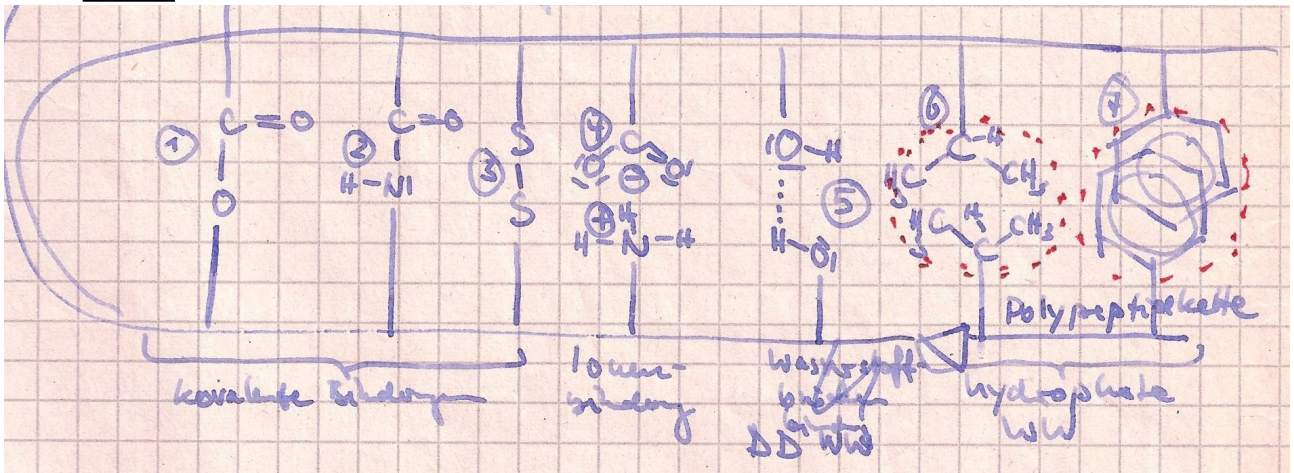 ① C=O
O
② C=O
H-N
③ S
S
④ C
O O
⊖
⊕ H
H-N-H
⑤ O-H
H-O
⑥ C-H
H3C CH3
H3C H CH3
C
⑦
Polypreptidkette
kovalente Bindungen
Ionen-
bindung
DD WW
hydrophobe
WW